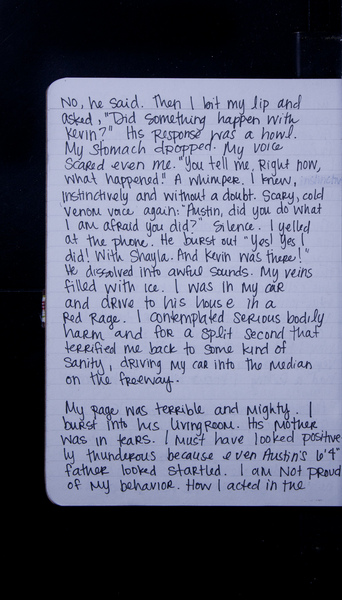 No, he said. Then I bit my lip and
asked, "Did something happen with
Kevin?" His response was a howl.
My stomach dropped. My voice
scared even me. "You tell me, Right now,
what happened." A whimper. I knew,
instinctively and without a doubt. Scary, cold
venom voice again: "Austin, did you do what
I am afraid you did?" Silence. I yelled
at the phone. He burst out "Yes! Yes I
did! With Shayla. And Kevin was there!"
He dissolved into awful sounds. My veins
filled with ice. I was in my car
and drive to his house in a
Red Rage. I contemplated serious bodily
harm and for a split second that
terrified me back to some kind of
sanity, driving my car into the median
on the freeway.
My rage was terrible and mighty. I
burst into his livingroom. His mother
was in tears. I must have looked positive
ly thunderous because even Austin's 6'4"
father looked startled. I am not proud
of my behavior. How I acted in the